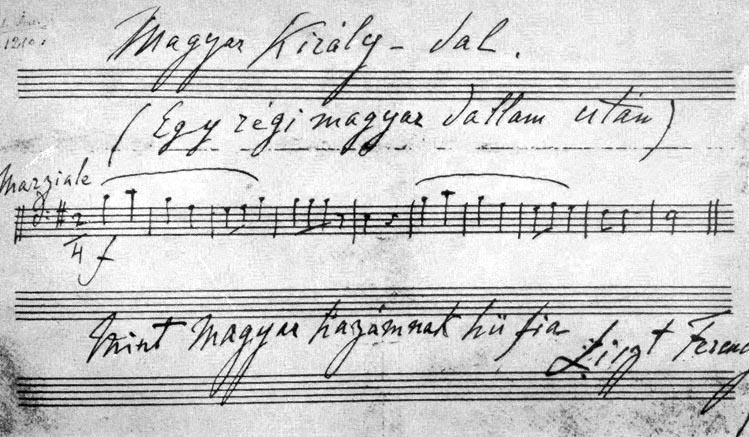 Magyar Király-dal.
(Egy régi magyar dallam után)
Marziale
2
4 f
Mint Magyar hazámnak hű fia
Liszt Ferenc